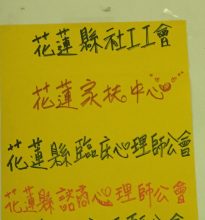 花蓮縣社工工會
花蓮家扶中心
花蓮縣臨床心理師公會
花蓮縣諮商心理師公會